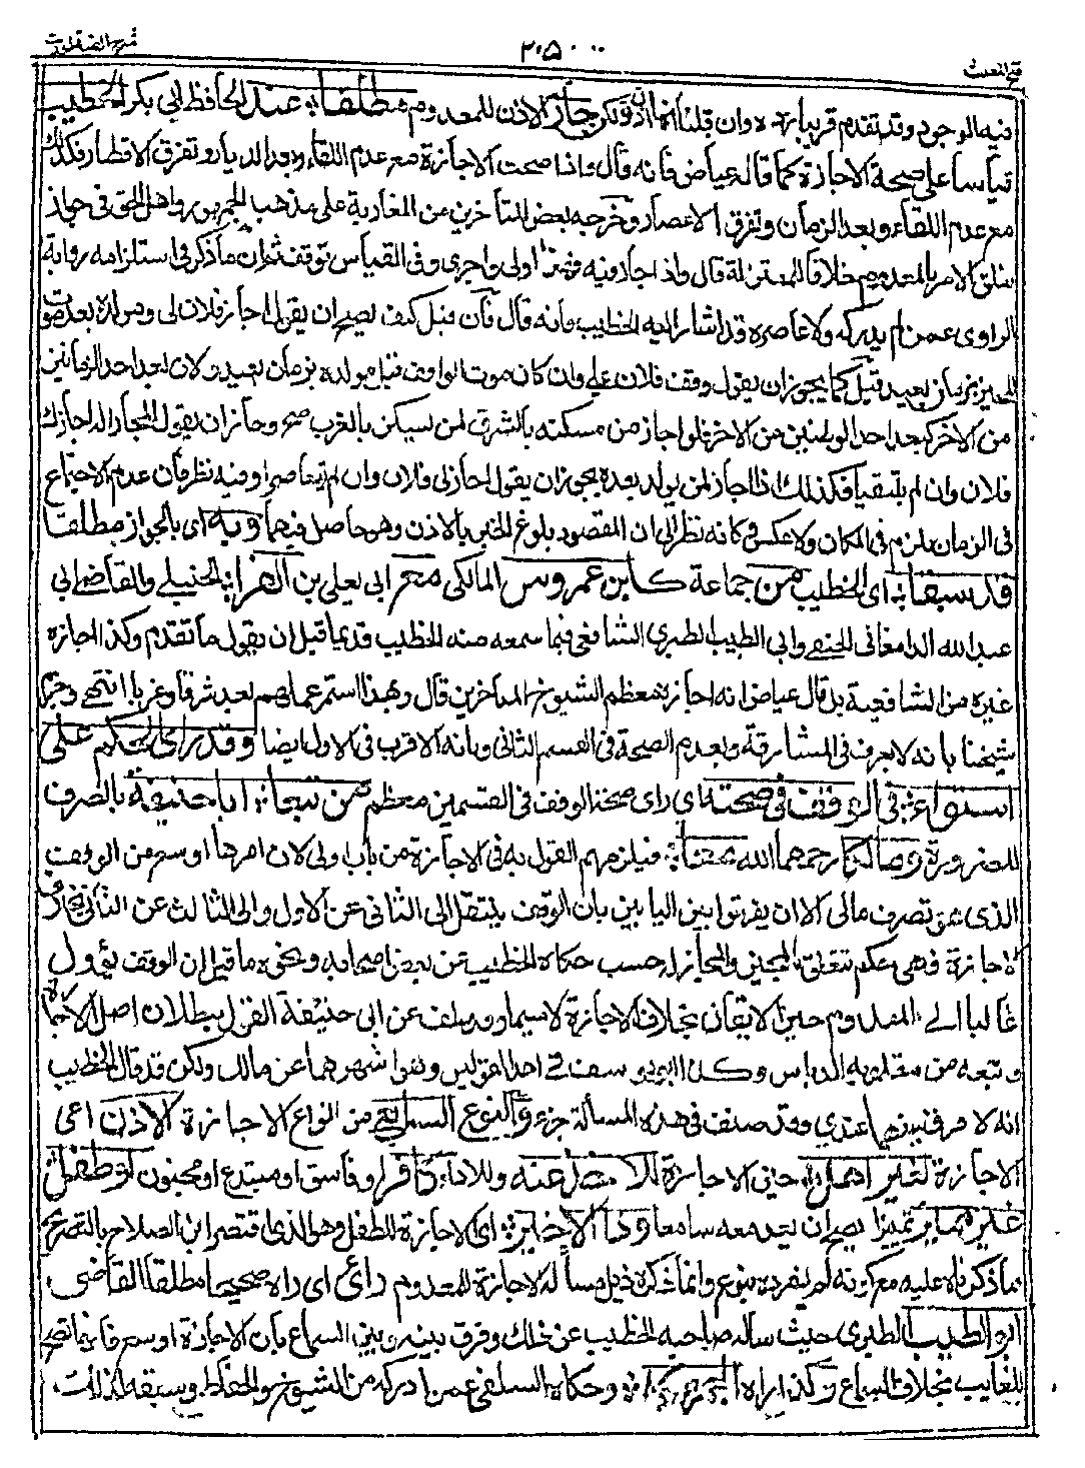 شرح الفية
٢٠٥
فتح المغيث
فيه الوجود وقد تقدم قريبا وان قلنا انها اذن وكن جاز الاذن للمعدوم مطلقا عند الحافظ ابي بكر الخطيب
قياسا على صحة الاجازة كما قاله عياض فانه قال فاذا صحت الاجازة مع عدم اللقاء وبعد الديار وتفرق الاقطار فكذلك
مع عدم اللقاء وبعد الزمان وتفرق الاعصار وخرجه بعض المتأخرين من المغاربة على مذهب اهل الحق في جواز
تعلق الامر بالمعدوم خلافا للمعتزلة قال واذا جاز فيه فهذا اولى واحرى وفي القياس توقف ثم ان ما ذكر في استلزامه رواية
الراوي عمن لم يدركه ولا عاصره قد اشار اليه الخطيب وانه قال فان قيل كيف يصح ان يقول اجاز فلان لي ومولده بعد موت
المجيز بزمان بعيد قيل كما يجوز ان يقول وقف فلان علي وان كان موت الواقف قبل مولده بزمان بعيد ولان بعد احد الزمانين
من الاخر كبعد احد الوطنين من الاخر فلو اجاز من مسكنه بالشرق لمن يسكن بالغرب صح وجاز ان يقول المجاز له اجازني
فلان وان لم يلتقيا فكذلك اذا اجاز لمن يولد بعده يجوز ان يقول اجازني فلان وان لم يتعاصرا وفيه نظر فان عدم الاجتماع
في الزمان يلزم في المكان ولا عكس وكانه نظر الى ان المقصود بلوغ المخبر بالاذن وهو حاصل فيهما وبه اي بالجواز مطلقا
قد سبقا اي الخطيب من جماعة كابن عمروس المالكي مع ابي يعلى بن الفراء الحنبلي والقاضي ابي
عبد الله الدامغاني الحنفي وابي الطيب الطبري الشافعي فيما سمعه منه الخطيب قديما قبل ان يقول ما تقدم وكذا اجازه
غيره من الشافعية بل قال عياض انه اجازه معظم الشيوخ المتأخرين قال وبهذا استمر عملهم بعد شرقا وغربا انتهى وجزم
شيخنا بانه لا يعرف في المشارقة وبعدم الصحة في القسم الثاني وبانه الاقرب في الاول ايضا وقد راى الحكم على
استواء في الوقف في صحته اي راى صحة الوقف في القسمين معظم من تبعا ابا حنيفة بالصرف
للضرورة ومالكا رحمهما الله معا فيلزمهم القول به في الاجازة من باب اولى لان امرها اوسع من الوقف
الذي هو تصرف مالي الا ان يفرقوا بين البابين بان الوقف ينتقل الى الثاني عن الاول والى الثالث عن الثاني بخلاف
الاجازة فهي حكم تتعلق بالمجيز والمجاز له حسب حكاه الخطيب عن بعض اصحابه ونحوه ما قيل ان الوقف يؤول
غالبا الى المعدوم حين الايقاف بخلاف الاجازة لا سيما وقد سلف عن ابي حنيفة القول ببطلان اصل الاجازة
وتبعه من مقلديه الدباس وكذا ابو يوسف في احد القولين وهو اشهرهما عن مالك ولكن قد قال الخطيب
انه لا فرق بينهما عندي وقد صنف في هذه المسألة جزء والنوع السابع من انواع الاجازة الاذن اي
الاجازة لغير اهل حين الاجازة للاخذ عنه وللاداء كافر او فاسق او مبتدع او مجنون او طفل
غير مميز تمييزا يصح ان يعد معه سامعا وذا الاخير اي الاجازة للطفل وهو الذي اقتصر ابن الصلاح بالتصريح
بما ذكرناه عليه مع كونه لم يفرده بنوع وانما ذكره ذيل مسألة الاجازة للمعدوم رأى اي راه صحيحا مطلقا القاضي
ابو الطيب الطبري حيث سأله صاحبه الخطيب عن ذلك وفرق بينه وبين السماع بان الاجازة اوسع فانها تصح
للغايب بخلاف السماع وكذا راه الجمهور وحكاه السلفي عمن ادركه من الشيوخ والحفاظ وسبقه لذلك